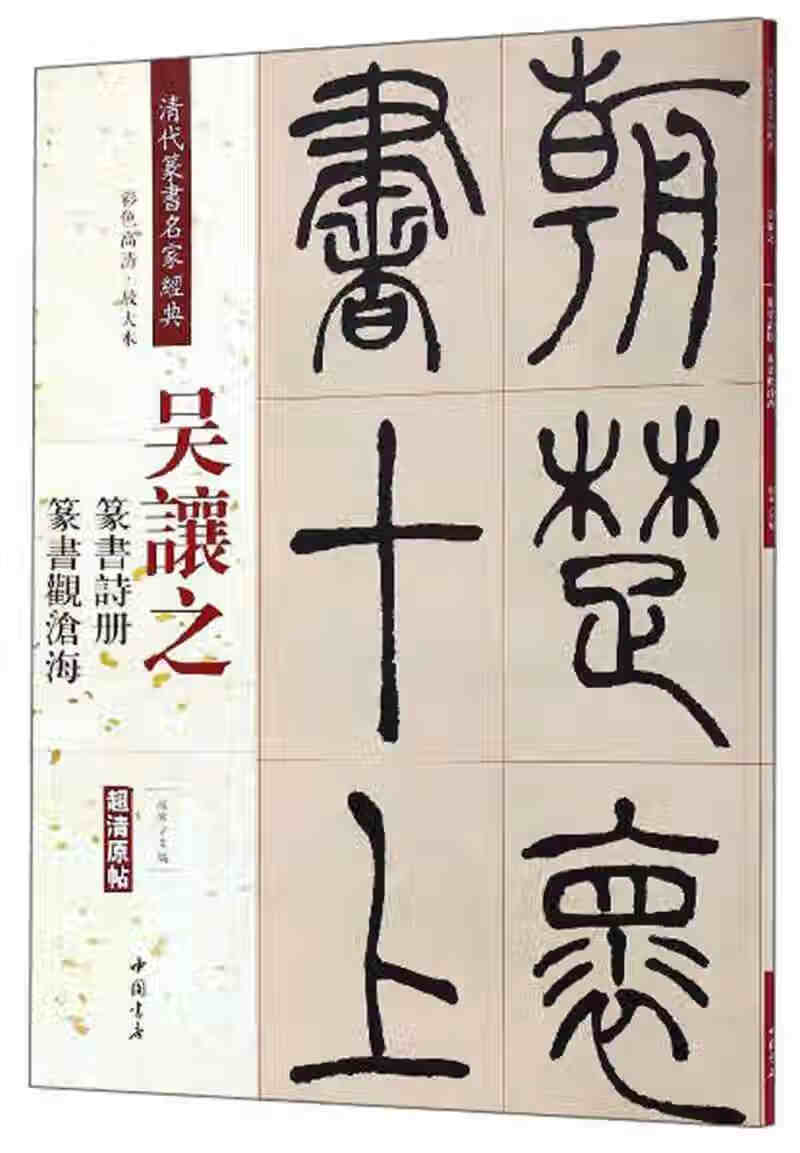 朝楚褱
書十上
清代篆書名家經典
彩色高清·放大本
吴讓之
篆書詩册
篆書觀滄海
超清原帖
中國書店